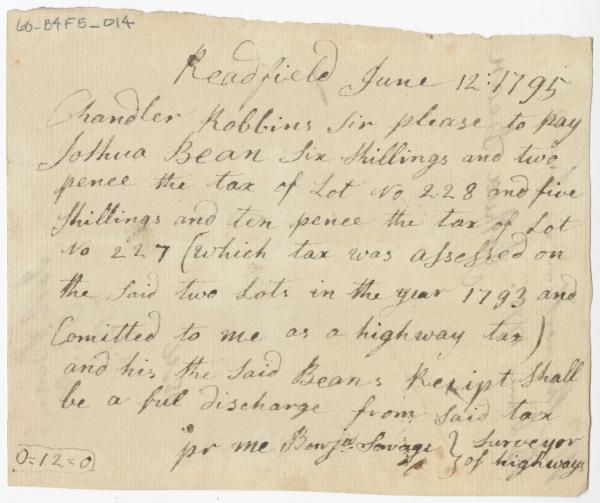 60-B4F5-014
Readfield June 12: 1795
Chandler Robbins Sir please to pay
Joshua Bean Six Shillings and two
pence the tax of Lot No 228 and five
Shillings and ten pence the tax of Lot
No 227 (which tax was assessed on
the Said two Lots in the year 1793 and
Comitted to me as a highway tax)
and his the Said Beans Receipt Shall
be a ful discharge from Said tax
pr me Benjan Savage } Surveyor
of highways
0=12=0